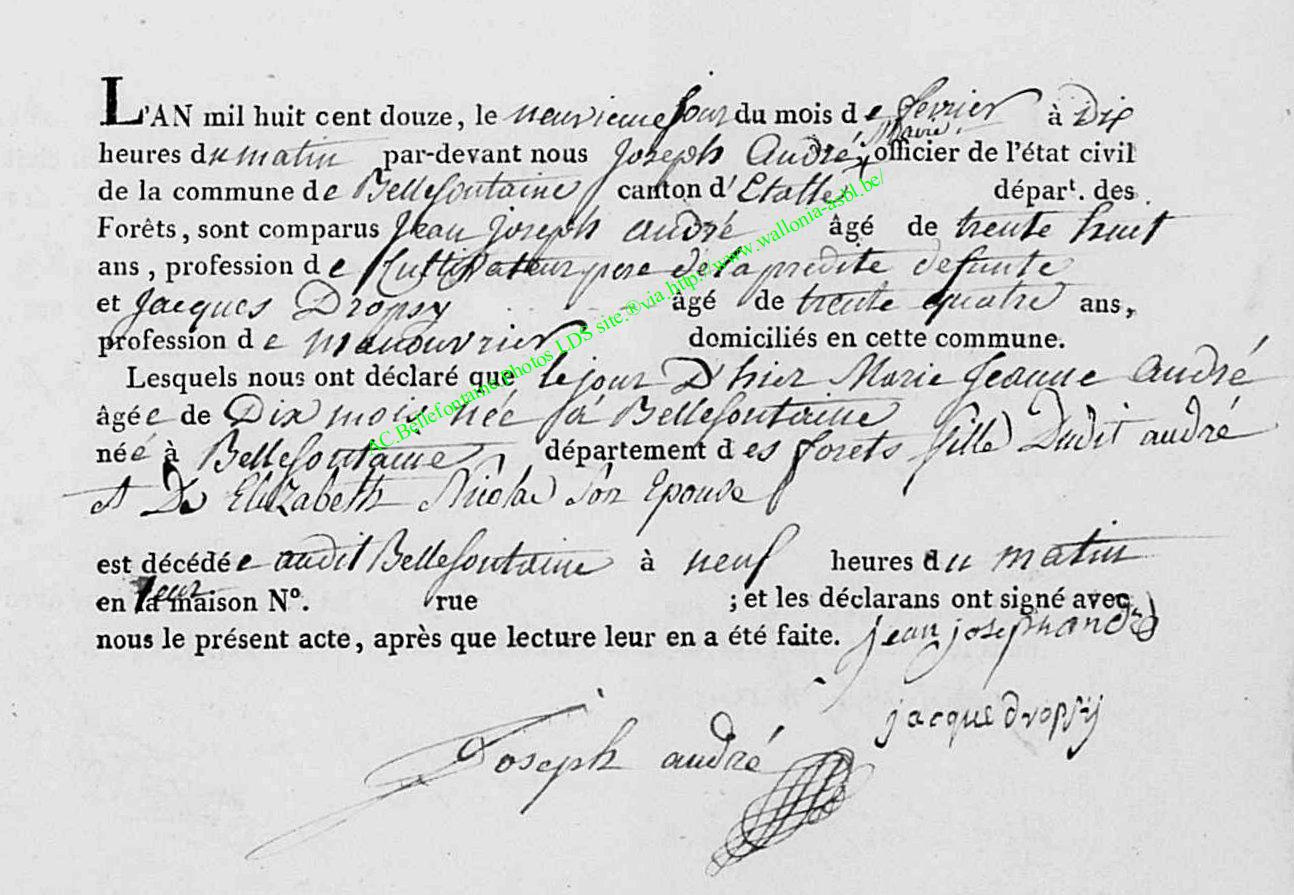 L'AN mil huit cent douze, le neuvieme jour du mois de fevrier à Dix
heures du matin par-devant nous Joseph André Maire officier de l'état civil
de la commune de Bellefontaine canton d'Etalle dépar^t. des
Forêts, sont comparus Jean Joseph andré âgé de trente huit
ans, profession de Cultivateur pere de la predite defunte
et Jacques Dropsy âgé de trente quatre ans,
profession de manouvrier domiciliés en cette commune.
Lesquels nous ont déclaré que le jour D'hier Marie Jeanne André
âgée de Dix mois née à Bellefontaine
née à Bellefontaine département des forets fille Dudit andré
et De Elizabeth Nicolas son Epouse
est décédée audit Bellefontaine à neuf heures du matin
en leur la maison N°. rue ; et les déclarans ont signé avec
nous le présent acte, après que lecture leur en a été faite. jean joseph andré
jacque dropsy
Joseph andré
AC.Bellefontaine Photos LDS site ®via.http://www.wallonia-asbl.be/